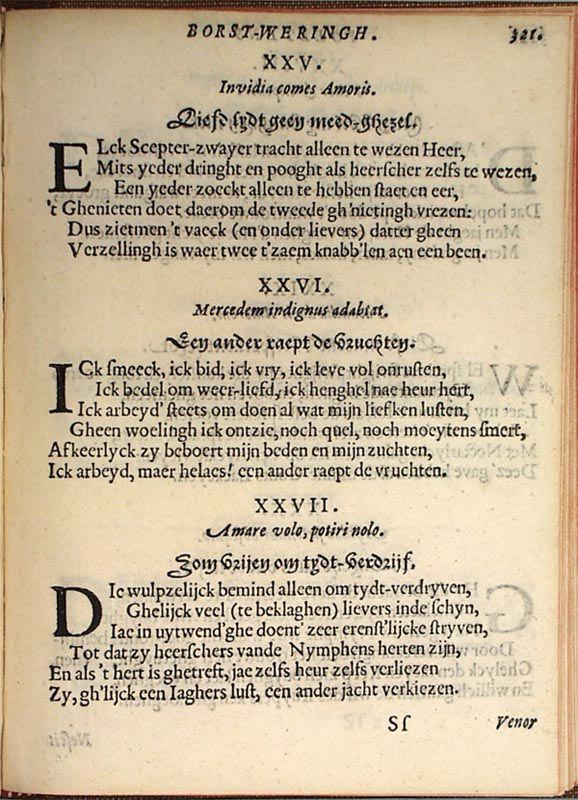 BORST-WERINGH. 321.
XXV.
Invidia comes Amoris.
Liefd lydt geen meed-ghezel.
ELck Scepter-zwayer tracht alleen te wezen Heer,
Mits yeder dringht en pooght als heerscher zelfs te wezen,
Een yeder zoeckt alleen te hebben staet en eer,
't Ghenieten doet daerom de tweede gh'nietingh vrezen:
Dus zietmen 't vaeck (en onder lievers) datter gheen
Verzellingh is waer twee t'zaem knabb'len aen een been.
XXVI.
Mercedem indignus adabtat.
Een ander raept de Vruchten.
ICk smeeck, ick bid, ick vry, ick leve vol onrusten,
Ick bedel om weer-liefd, ick henghel nae heur hert,
Ick arbeyd' steets om doen al wat mijn liefken lusten,
Gheen woelingh ick ontzie, noch quel, noch moeytens smert,
Afkeerlyck zy behoert mijn beden en mijn zuchten,
Ick arbeyd, maer helaes! een ander raept de vruchten.
XXVII.
Amare volo, potiri nolo.
Zom Vrijen om tydt-Verdrijf.
DIe wulpzelijck bemind alleen om tydt-verdryven,
Ghelijck veel (te beklaghen) lievers inde schyn,
Iae in uytwend'ghe doent' zeer erenst'lijcke stryven,
Tot dat zy heerschers vande Nymphens herten zijn,
En als 't hert is ghetreft, jae zelfs heur zelfs verliezen
Zy, gh'lijck een Iaghers lust, een ander jacht verkiezen.
Sſ Venor